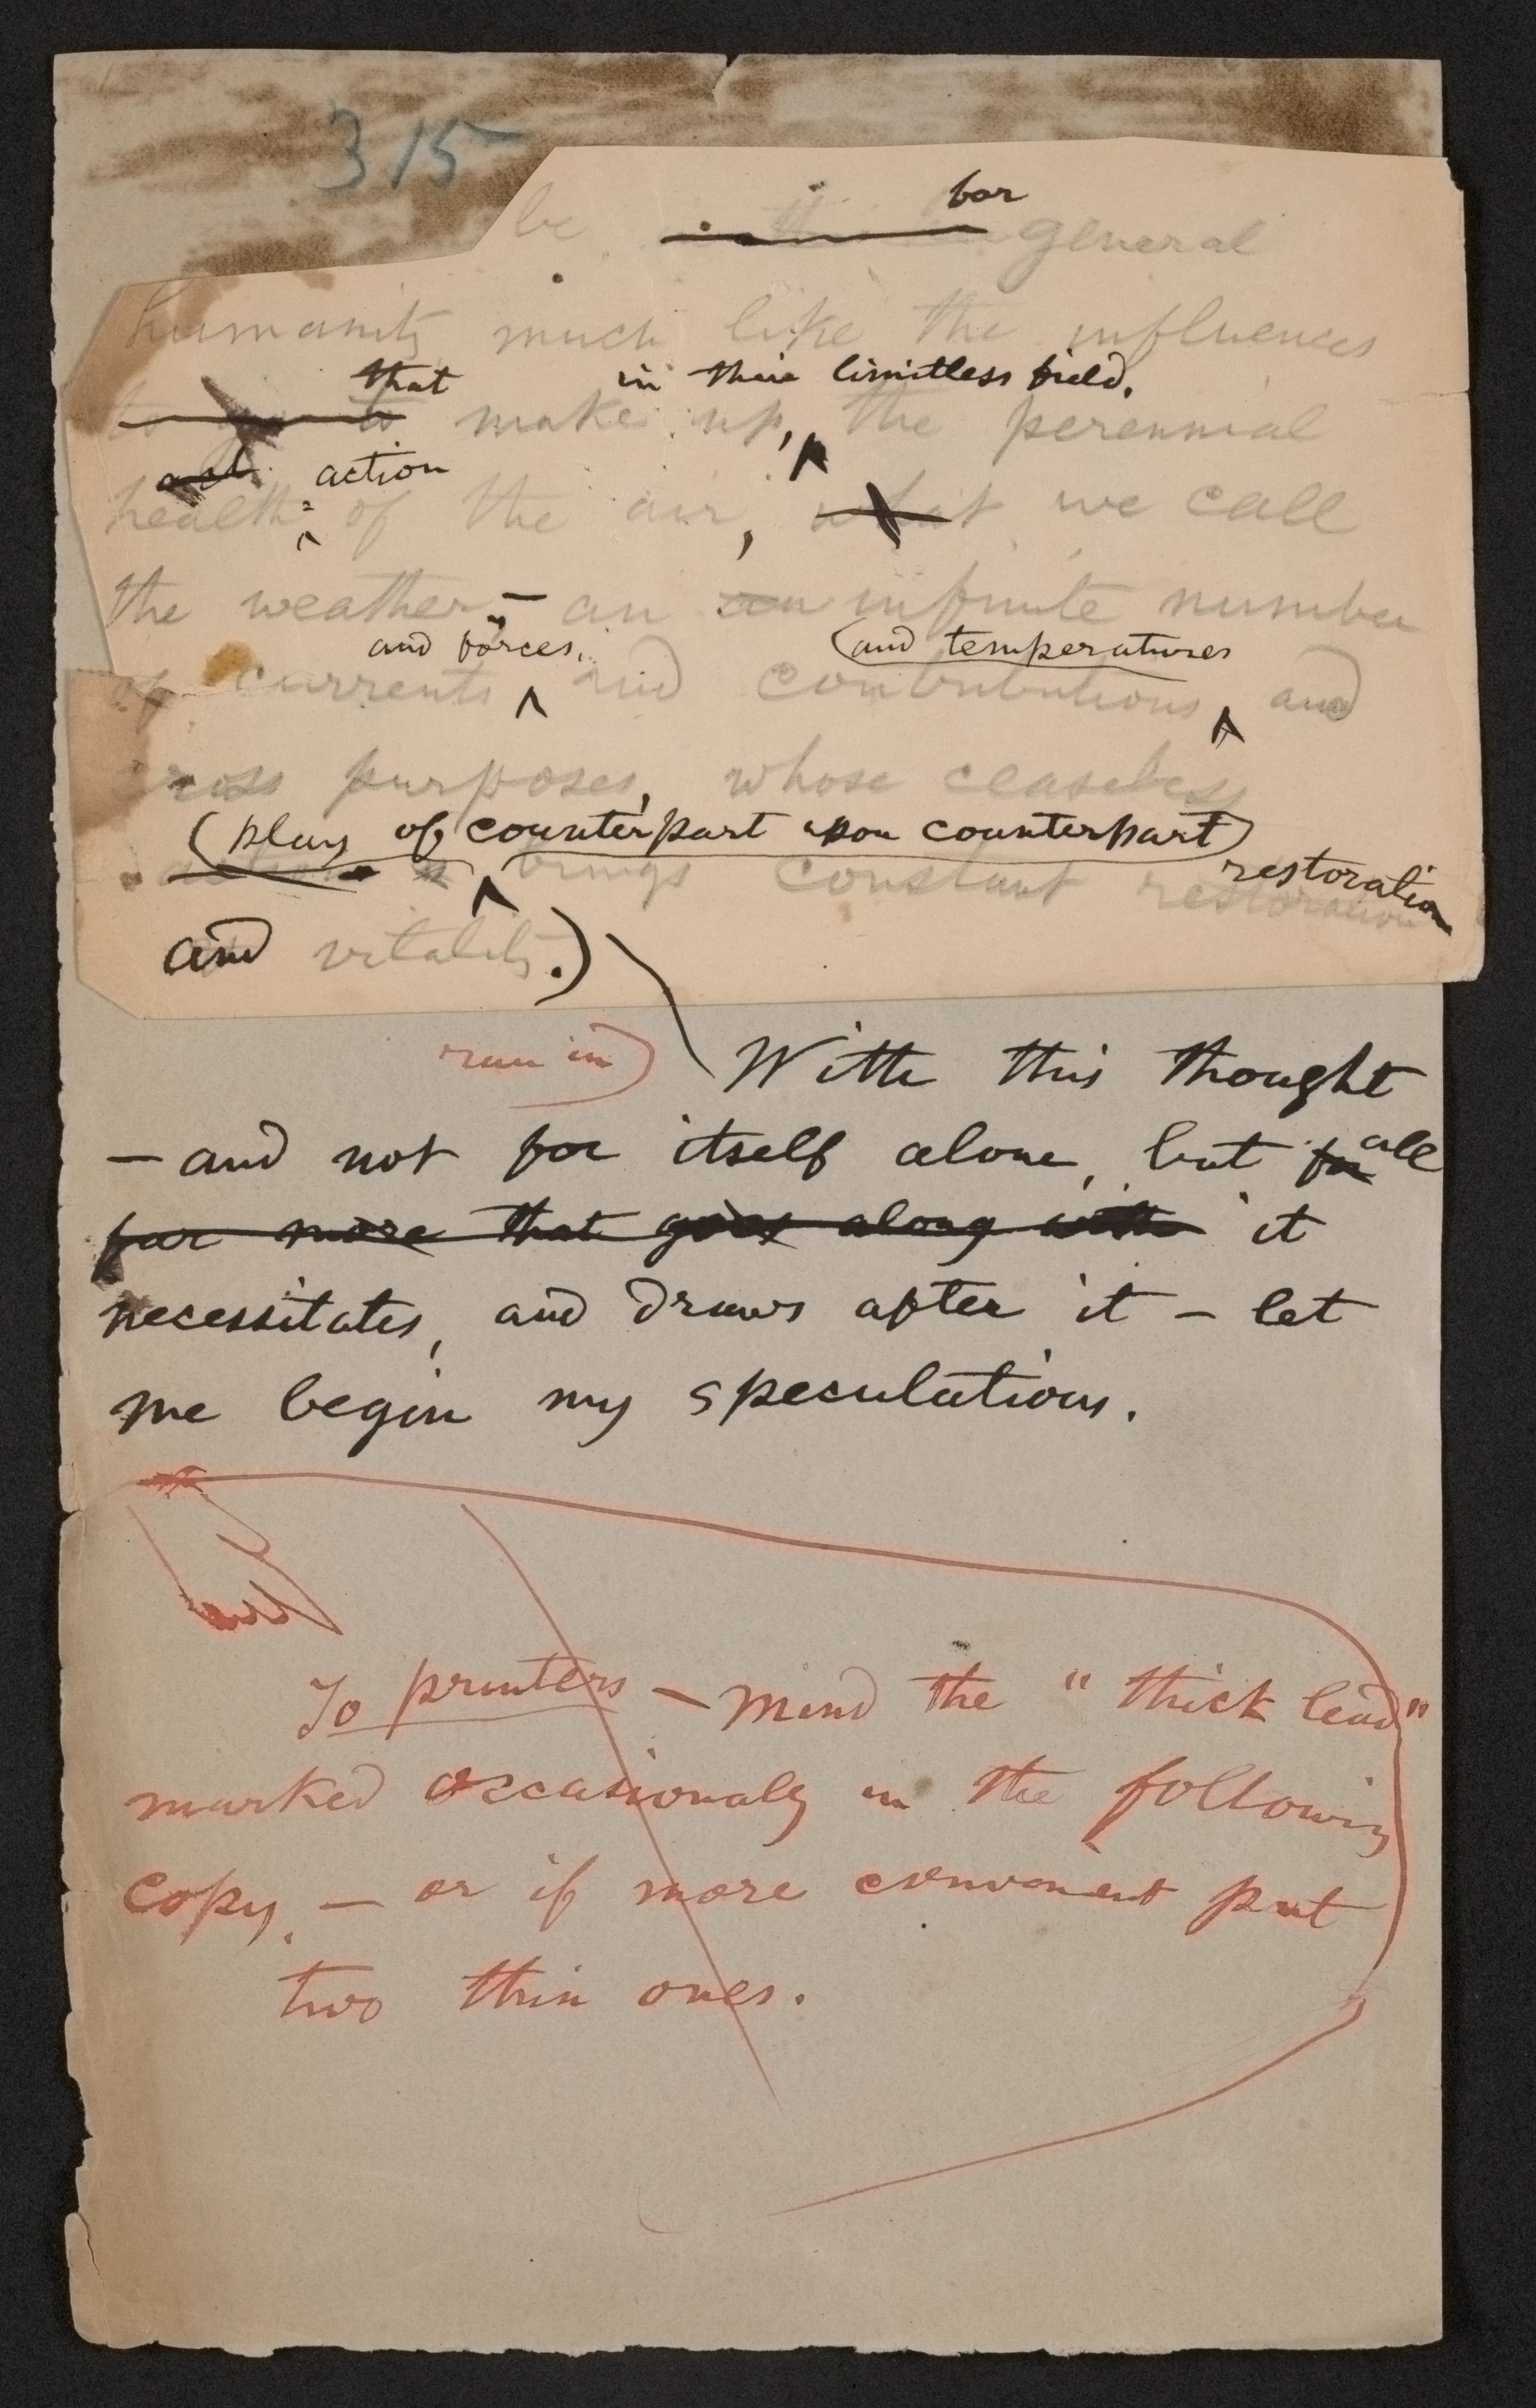 315
for
be general
humanity much like the influences
that in their limitless field,
to go to make up, the perennial
act action
health- of the air, what we call
the weather – an an infinite number
and forces, (and temperatures
of currents and contributions, and
cross purposes, whose ceaseless
(play of counterpart upon counterpart)
restoration
action brings constant restoration
and vitality.)
run in) With this thought
— and not for itself alone, but for all
far more that goes along with it
necessitates, and draws after it — let
me begin my speculations.
To printers — Mind the "thick lead"
marked occasionaly in the following
copy, — or if more convenient put
two thin ones.